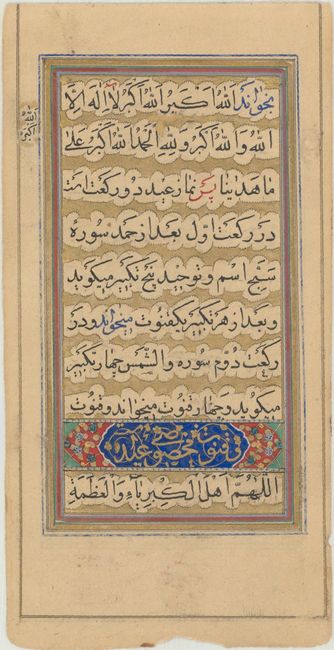 بخواند الله اكبر الله اكبر لا اله الا
الله والله اكبر ولله الحمد الله اكبر على
ما هدينا پس نماز عيد دو ركعت است
در ركعت اوّل بعد از حمد سوره
سبح اسم و توحيد پنج تكبير ميكويد
و بعد از هر تكبير يكقنوت ميخواند و در
ركعت دوم سوره والشمس چهار تكبير
ميكويد و چهار قنوت ميخواند و قنوت
قنوت مخصوص عيد
اللهمّ اهل الكبرياء والعظمة
الله اكبر